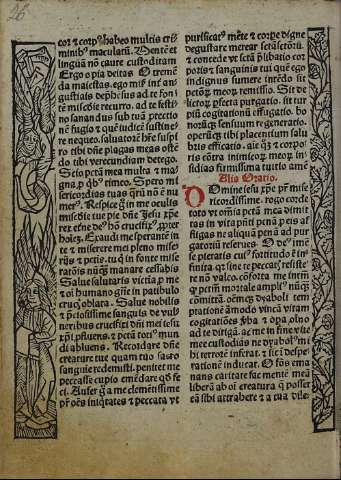 26
cor & corpꝰ habeo multis cri
minibꝰ maculatū. Mentē et
linguā nō caute custoditam
Ergo o pia deitas O tremē
da maiestas. ego misꝫ int̄ an
gustias dephēsus ad te fonī
misericordie recurro. ad te festi
no sanandus sub tuā ꝓtectio
nē fugio & quē iudicē sustine
re nequeo. saluatorē habere suspiro
tibi dn̄e plagas meas ostē
do tibi verecundiam detego.
Scio pctā mea multa & ma
gna. ꝓ qbꝰ timeo. Spero mi
sericordias tuas quarum nō ē nu
merꝰ. Respice ergo in me oculis
misericordie tue pie dn̄e Jesu xp̄e
rex eterne deus homo crucifixꝰ. ꝓpter
hominem. Exaudi me sperantē in
te & miserere mei pleno miserijs
& peccatis. tu qui in fonte misera
tionis nūquam manare cessabis
Salue salutaris victima ꝓ me
& oī humano genere in patibulo
crucis oblata. Salue nobilis
& p̄ciosissime sanguis de vul
neribus crucifixi dn̄i mei iesu
xp̄i ꝓfluens. & pctā toti mun
di abluens. Recordare dn̄e
creature tue quam tuo sacro
sanguine redemisti. penitet me
peccasse cupio emēdare qd̄ fe
ci. Aufer ergo a me clementissime
pater oēs iniquitates & peccata ut
purificatꝰ mēte & corꝑe digne
degustare merear sctā sctōrū
& concede vt sctā p̄libatio cor
poris & sanguinis tui quē ego
indignus sumere intēdo sit
pctōrum meorum remissio. Sit de
lictorum perfecta purgatio. sit tur
piū cogitationū effugatio. bo
norumque sensuum regeneratio.
operūque tibi placentium salu
bris efficatia. aīe quoque & corpo
ris cōtra inimicorum meorum insi
dias firmissima tuitio amē
Alia Oratio.
Domine iesu xp̄e pater mi
sericordissime. rogo corde
toto vt omnia pctā mea dimit
tas in vita pn̄ti penā & peis al
figas ne aliquā penā ad pur
gatoriū reserues. O deꝰ im̄e
se pietatis cuiꝰ fortitudo ē in
finita quia sine te peccatis resiste
re nō valeo. cōforta me infirmū
& peccatū mortale ampliꝰ nūquam
cōmittā. oēmque dyaboli tem
ptationē amodo vincā vtinam
cogitatiōes verba & opa oīno
ad te dirigā. ac me in fine vite
mee custodias ne dyabolꝰ mi
hi terrorē inferat. & sic in despe
rationē inducat. O fons ema
nans caritate fac mente meā
liberā ab oī creatura que posset
eam sibi attrahere & a cura vile